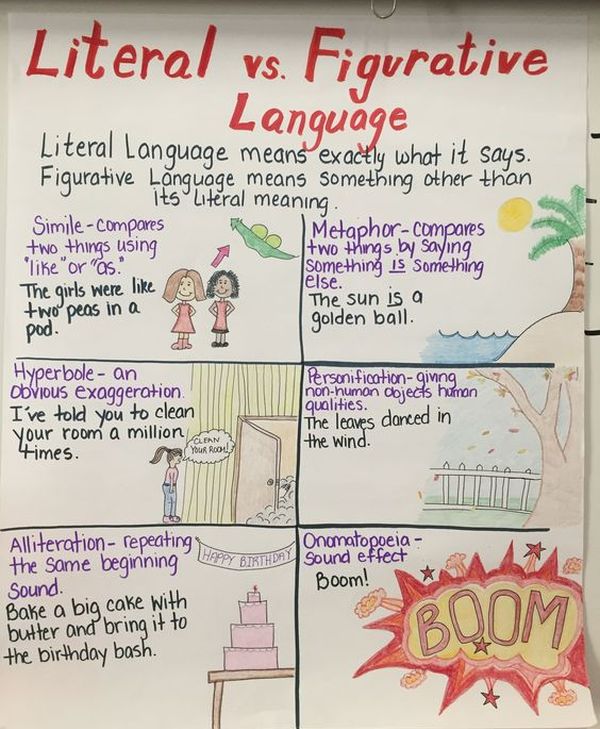 Literal vs. Figurative
Language
Literal Language means exactly what it says.
Figurative Language means something other than
its literal meaning.
Simile - compares
two things using
"like" or "as."
The girls were like
two peas in a
pod.
Metaphor - compares
two things by saying
something IS something
else.
The sun is a
golden ball.
Hyperbole - an
obvious exaggeration.
I've told you to clean
your room a million
times.
CLEAN
YOUR ROOM!
Personification - giving
non-human objects human
qualities.
The leaves danced in
the wind.
Alliteration - repeating
the same beginning
sound.
Bake a big cake with
butter and bring it to
the birthday bash.
HAPPY BIRTHDAY
Onomatopoeia -
sound effect
Boom!
BOOM